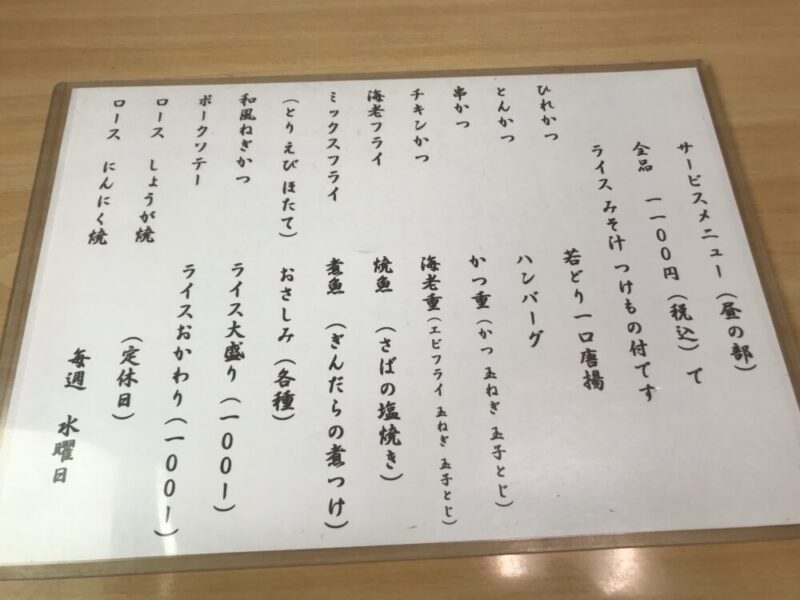 サービスメニュー（昼の部）
全品　一一〇〇円（税込）で
ライス みそ汁 つけもの付てす
ひれかつ
とんかつ
串かつ
チキンかつ
海老フライ
ミックスフライ
（とり えび ほたて）
和風ねぎかつ
ポークソテー
ロース　しょうが焼
ロース　にんにく焼
若どり一口唐揚
ハンバーグ
かつ重（かつ 玉ねぎ 玉子とじ）
海老重（エビフライ 玉ねぎ 玉子とじ）
焼魚　（さばの塩焼き）
煮魚　（ぎんだらの煮つけ）
おさしみ（各種）
ライス大盛り（一〇〇ー）
ライスおかわり（一〇〇ー）
（定休日）
毎週　水曜日